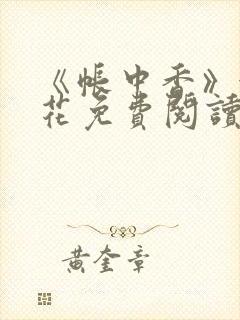 《帳中香》
花免費閱讀
黃奎章